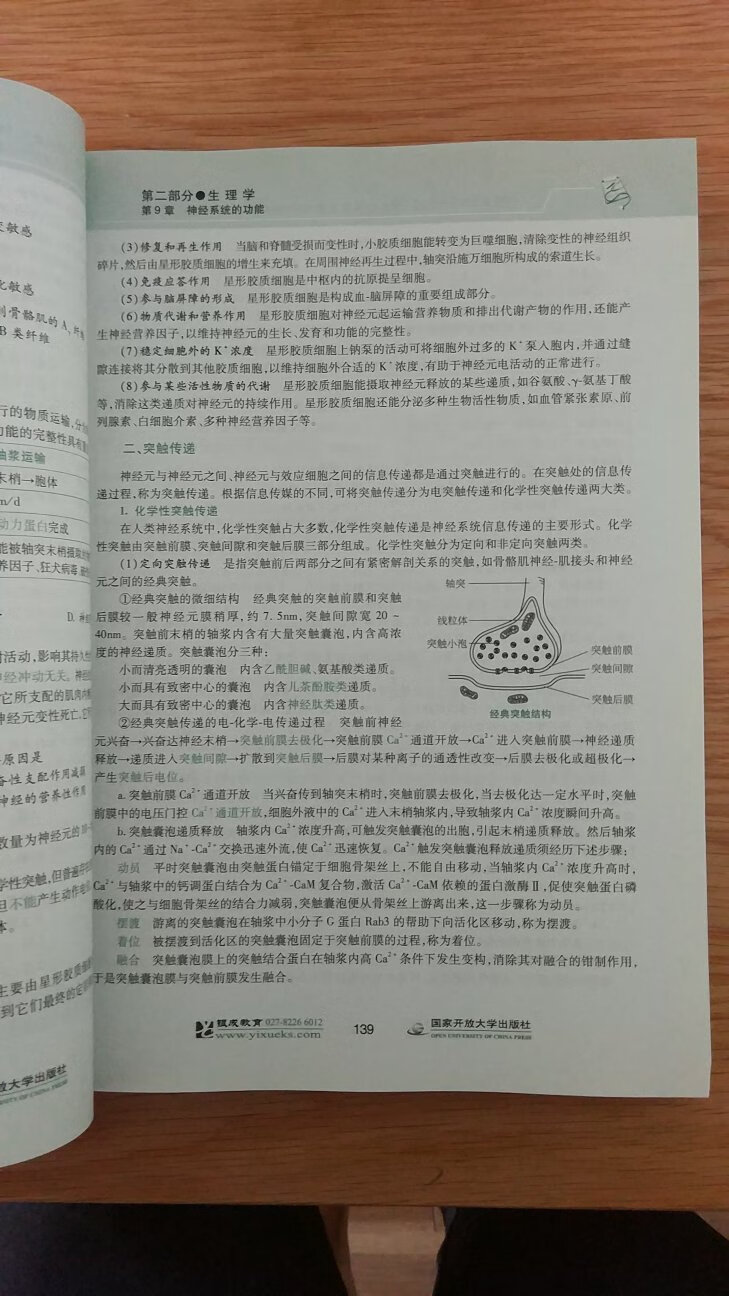 第二部分●生理学
第9章 神经系统的功能
(3)修复和再生作用 当脑和脊髓受损而变性时,小胶质细胞能转变为巨噬细胞,清除变性的神经组织
碎片,然后由星形胶质细胞的增生来充填。在周围神经再生过程中,轴突沿施万细胞所构成的索道生长。
(4)免疫应答作用 星形胶质细胞是中枢内的抗原提呈细胞。
(5)参与脑屏障的形成 星形胶质细胞是构成血-脑屏障的重要组成部分。
(6)物质代谢和营养作用 星形胶质细胞对神经元起运输营养物质和排出代谢产物的作用,还能产
生神经营养因子,以维持神经元的生长、发育和功能的完整性。
(7)稳定细胞外的K⁺浓度 星形胶质细胞上钠泵的活动可将细胞外过多的K⁺泵入胞内,并通过缝
隙连接将其分散到其他胶质细胞,以维持细胞外合适的K⁺浓度,有助于神经元电活动的正常进行。
(8)参与某些活性物质的代谢 星形胶质细胞能摄取神经元释放的某些递质,如谷氨酸、γ-氨基丁酸
等,消除这类递质对神经元的持续作用。星形胶质细胞还能分泌多种生物活性物质,如血管紧张素原、前
列腺素、白细胞介素、多种神经营养因子等。
二、突触传递
神经元与神经元之间、神经元与效应细胞之间的信息传递都是通过突触进行的。在突触处的信息传
递过程,称为突触传递。根据信息传媒的不同,可将突触传递分为电突触传递和化学性突触传递两大类。
1. 化学性突触传递
在人类神经系统中,化学性突触占大多数,化学性突触传递是神经系统信息传递的主要形式。化学
性突触由突触前膜、突触间隙和突触后膜三部分组成。化学性突触分为定向和非定向突触两类。
(1)定向突触传递 是指突触前后两部分之间有紧密解剖关系的突触,如骨骼肌神经-肌接头和神经
元之间的经典突触。
①经典突触的微细结构 经典突触的突触前膜和突触
后膜较一般神经元膜稍厚,约7.5nm,突触间隙宽20~
40nm。突触前末梢的轴浆内含有大量突触囊泡,内含高浓
度的神经递质。突触囊泡分三种:
小而清亮透明的囊泡 内含乙酰胆碱、氨基酸类递质。
小而具有致密中心的囊泡 内含儿茶酚胺类递质。
大而具有致密中心的囊泡 内含神经肽类递质。
②经典突触传递的电-化学-电传递过程 突触前神经
轴突
线粒体
突触小泡
突触前膜
突触间隙
突触后膜
经典突触结构
元兴奋→兴奋达神经末梢→突触前膜去极化→突触前膜Ca²⁺通道开放→Ca²⁺进入突触前膜→神经递质
释放→递质进入突触间隙→扩散到突触后膜→后膜对某种离子的通透性改变→后膜去极化或超极化→
产生突触后电位。
a. 突触前膜Ca²⁺通道开放 当兴奋传到轴突末梢时,突触前膜去极化,当去极化达一定水平时,突触
前膜中的电压门控Ca²⁺通道开放,细胞外液中的Ca²⁺进入末梢轴浆内,导致轴浆内Ca²⁺浓度瞬间升高。
b. 突触囊泡递质释放 轴浆内Ca²⁺浓度升高,可触发突触囊泡的出胞,引起末梢递质释放。然后轴浆
内的Ca²⁺通过Na⁺-Ca²⁺交换迅速外流,使Ca²⁺迅速恢复。Ca²⁺触发突触囊泡释放递质须经历下述步骤:
动员 平时突触囊泡由突触蛋白锚定于细胞骨架丝上,不能自由移动,当轴浆内Ca²⁺浓度升高时,
Ca²⁺与轴浆中的钙调蛋白结合为Ca²⁺-CaM复合物,激活Ca²⁺-CaM依赖的蛋白激酶Ⅱ,促使突触蛋白磷
酸化,使之与细胞骨架丝的结合力减弱,突触囊泡便从骨架丝上游离出来,这一步骤称为动员。
摆渡 游离的突触囊泡在轴浆中小分子G蛋白Rab3的帮助下向活化区移动,称为摆渡。
着位 被摆渡到活化区的突触囊泡固定于突触前膜的过程,称为着位。
融合 突触囊泡膜上的突触结合蛋白在轴浆内高Ca²⁺条件下发生变构,消除其对融合的钳制作用,
于是突触囊泡膜与突触前膜发生融合。
银成教育 027-8226 6012
www.yixueks.com
139
国家开放大学出版社
OPEN UNIVERSITY OF CHINA PRESS
敏感
化敏感
骨骼肌的A
B类纤维
行的物质运输
功能的完整性具有
轴浆运输
末梢→胞体
m/d
动力蛋白完成
能被轴突末梢摄取
养因子、狂犬病毒
D.
活动,影响其持久
神经冲动无关。神经
它所支配的肌肉内
神经元变性死亡
原因是
奋性支配作用减弱
神经的营养性作用
数量为神经元的
学性突触,但普遍存在
但不能产生动作电
体。
主要由星形胶质细
到它们最终的定
放大学出版社
UNIVERSITY OF CHINA PRESS